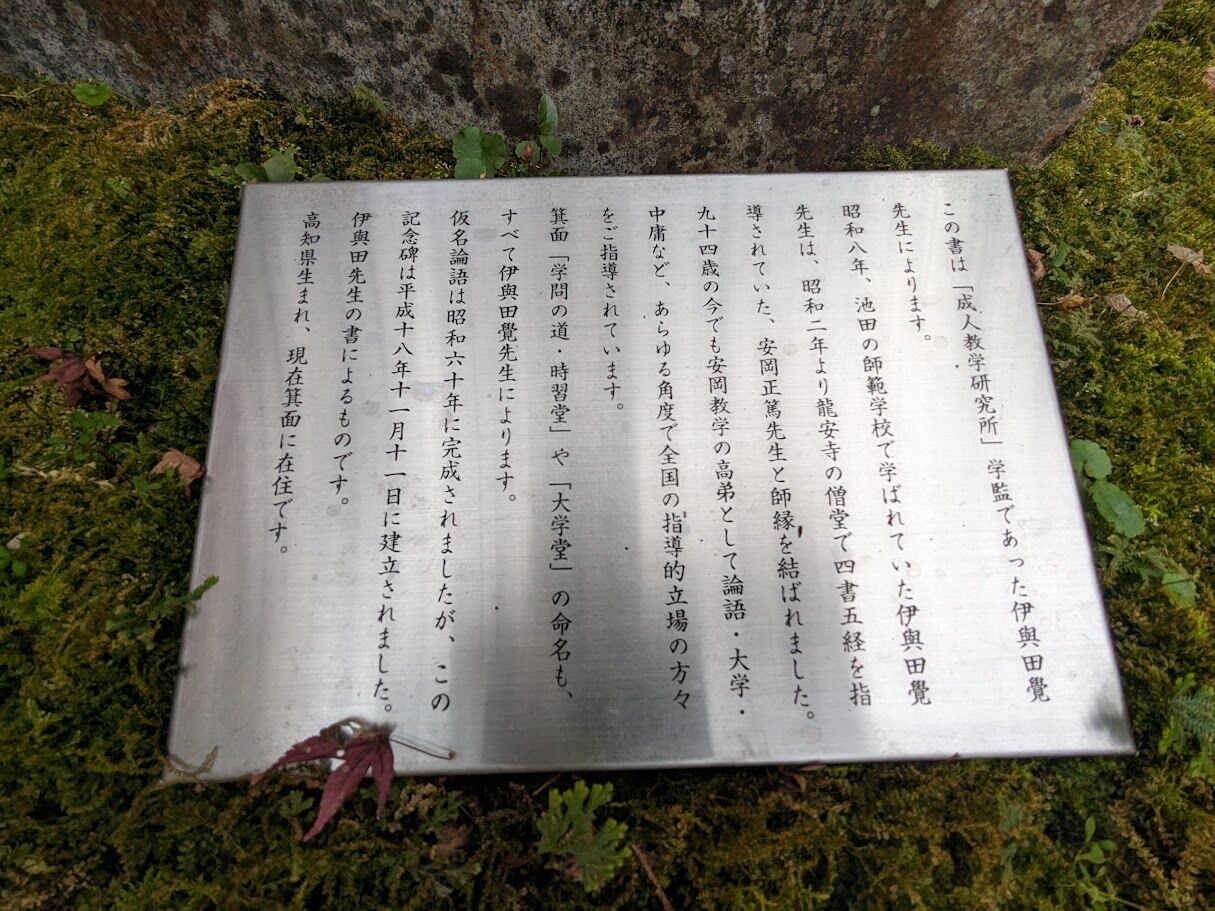 この書は「成人教学研究所」学監であった伊與田覺
先生によります。
昭和八年、池田の師範学校で学ばれていた伊與田覺
先生は、昭和二年より龍安寺の僧堂で四書五経を指
導されていた、安岡正篤先生と師縁を結ばれました。
九十四歳の今でも安岡教学の高弟として論語・大学・
中庸など、あらゆる角度で全国の指導的立場の方々
をご指導されています。
箕面「学問の道・時習堂」や「大学堂」の命名も、
すべて伊與田覺先生によります。
仮名論語は昭和六十年に完成されましたが、この
記念碑は平成十八年十一月十一日に建立されました。
伊與田先生の書によるものです。
高知県生まれ、現在箕面に在住です。